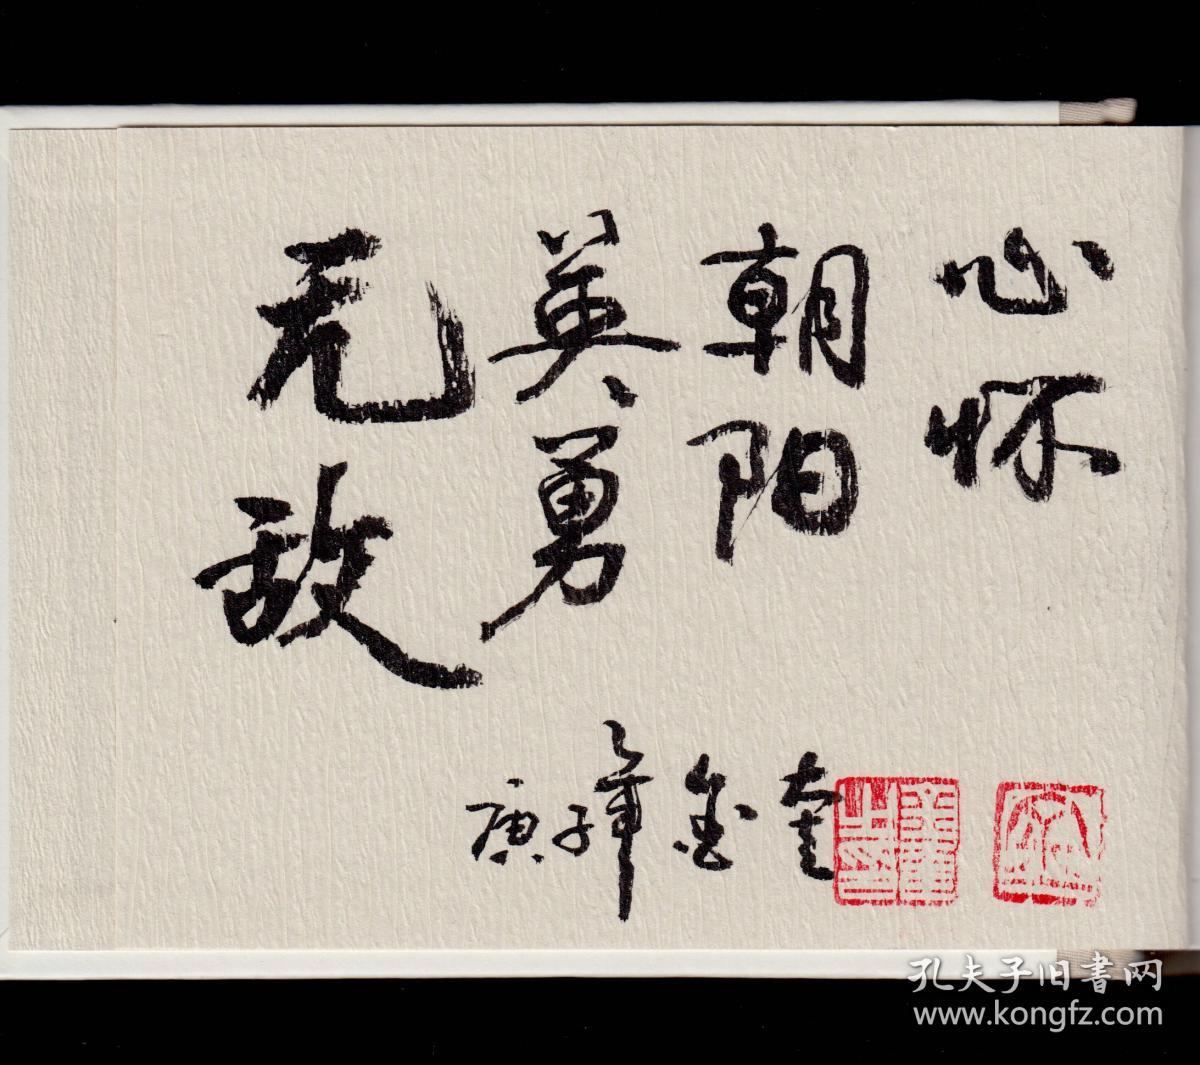 心怀
朝阳
英勇
无敌
庚子年金奎
孔夫子旧書网
www.kongfz.com